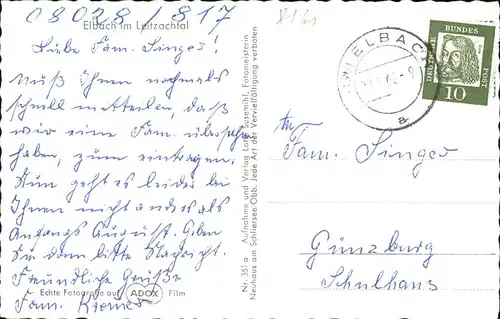 08028/817
8161
Elbach im Leitzachtal
Liebe Fam. Singer!
Muß Ihnen nochmals
schnell mitteilen, daß
wir eine Fam. übersehen
haben, zum eintragen.
Nun geht es leider bei
Ihnen nicht anders als
Anfangs August. Geben
Sie dann bitte Nachricht.
Freundliche Grüße
Fam.
Echte Fotografie auf ADOX Film
Nr. 351 a Aufnahme und Verlag Lotte Sussemihl, Fotomeisterin
Neuhaus am Schliersee/Obb. Jede Art der Vervielfältigung verboten
ELBACH
a
DEUTSCHE
BUNDES
POST
10
An
Fam. Singer
Günzburg
Schulhaus